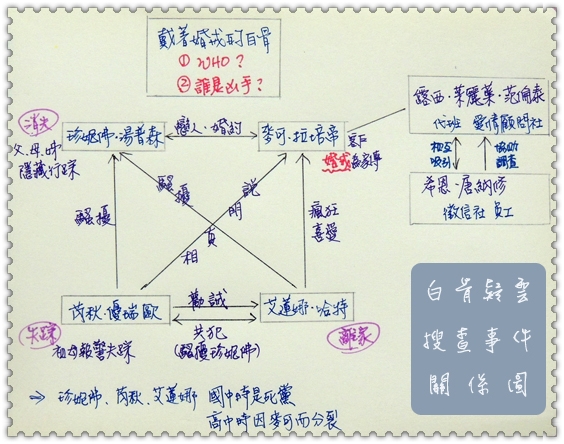 戴著婚戒的白骨
① WHO？
② 誰是凶手？
消失
父、母、姊
隱藏行踪
珍妮佛·湯普森
戀人·婚約
麥可·拉培帝
客戶
婚戒為家傳
露西·茉麗葉·范倫泰
代班 愛情顧問社
相互
吸引
協助
調查
希恩·唐納修
徵信社 員工
騷擾
騷擾
說
明
真
相
瘋狂
喜愛
芮秋·優瑞歐
勸誡
艾蓮娜·哈特
共犯
(騷擾珍妮佛)
失踪
祖母報警失踪
離家
白骨疑雲
搜查事件
關係圖
⇒ 珍妮佛、芮秋、艾蓮娜 國中時是死黨
高中時因麥可而分裂